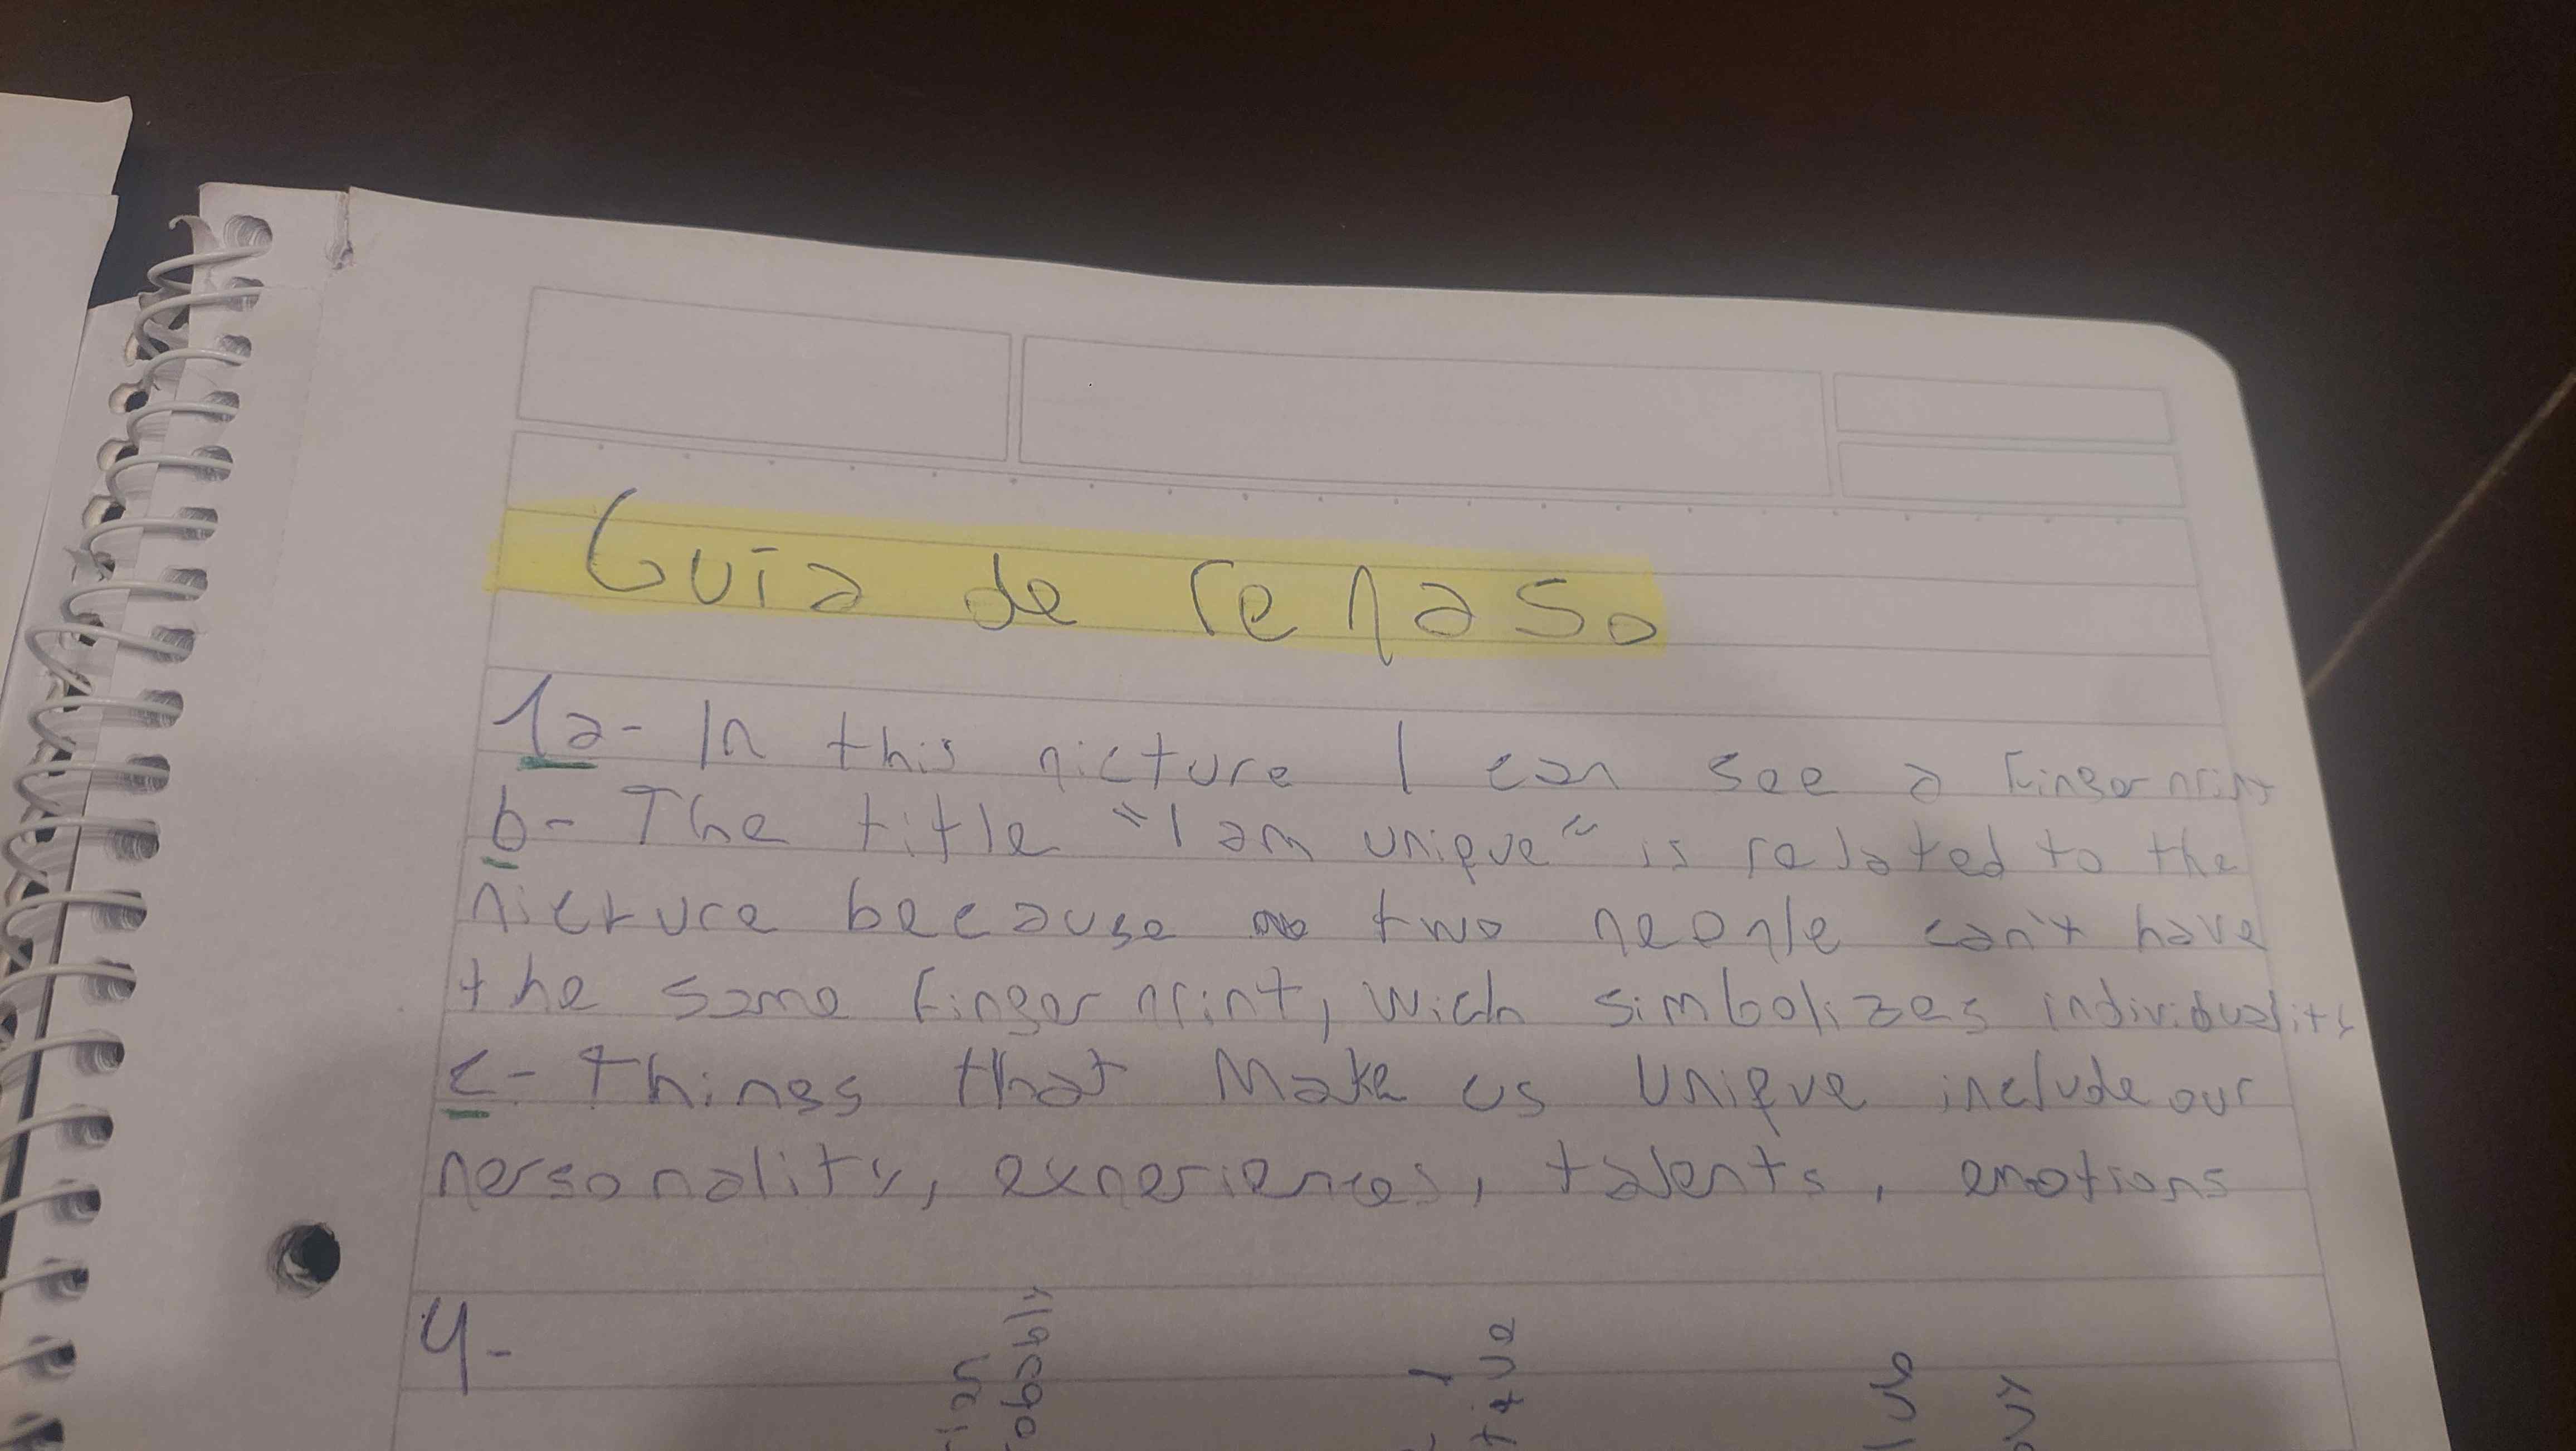 Guía de repaso
1a- In this picture I can see a fingerprint
b- The title "I am unique" is related to the
picture because two people can't have
the same fingerprint, wich simbolizes individuality
c- Things that Make us Unique include our
personality, experiences, talents, emotions
4-